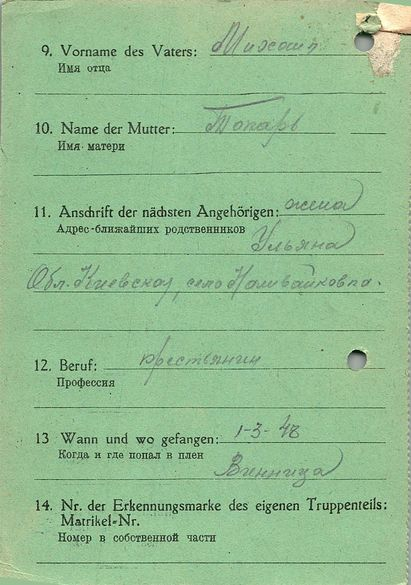 9. Vorname des Vaters: Михаил
Имя отца
10. Name der Mutter: Токарь
Имя матери
11. Anschrift der nächsten Angehörigen: жена
Адрес ближайших родственников Ульяна
Обл. Киевская, село Наливайковка.
12. Beruf: крестьянин
Профессия
13 Wann und wo gefangen: 1-3-
Когда и где попал в плен Винница
14. Nr. der Erkennungsmarke des eigenen Truppenteils:
Matrikel-Nr.
Номер в собственной части